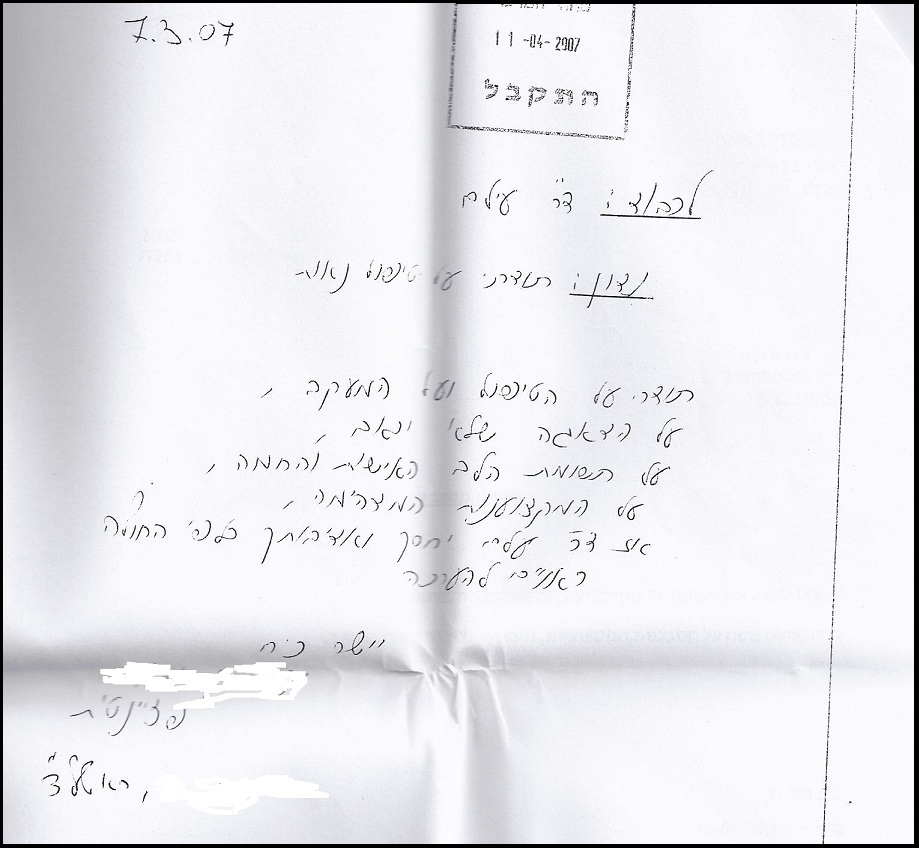 7.3.07
11-04-2007
התקבל
לכבוד: ד"ר עילם
נדון: תודתי על טיפול נאות
תודה על הטיפול ועל המעקב,
על הדאגה שלא יכאב,
על תשומת הלב האישית והחמה,
על המקצוענות המדהימה,
אז ד"ר עילם יחסך ואדיבותך כלפי החולה
ראויים להערכה
יישר כח
פציינטית
ראשל"צ,